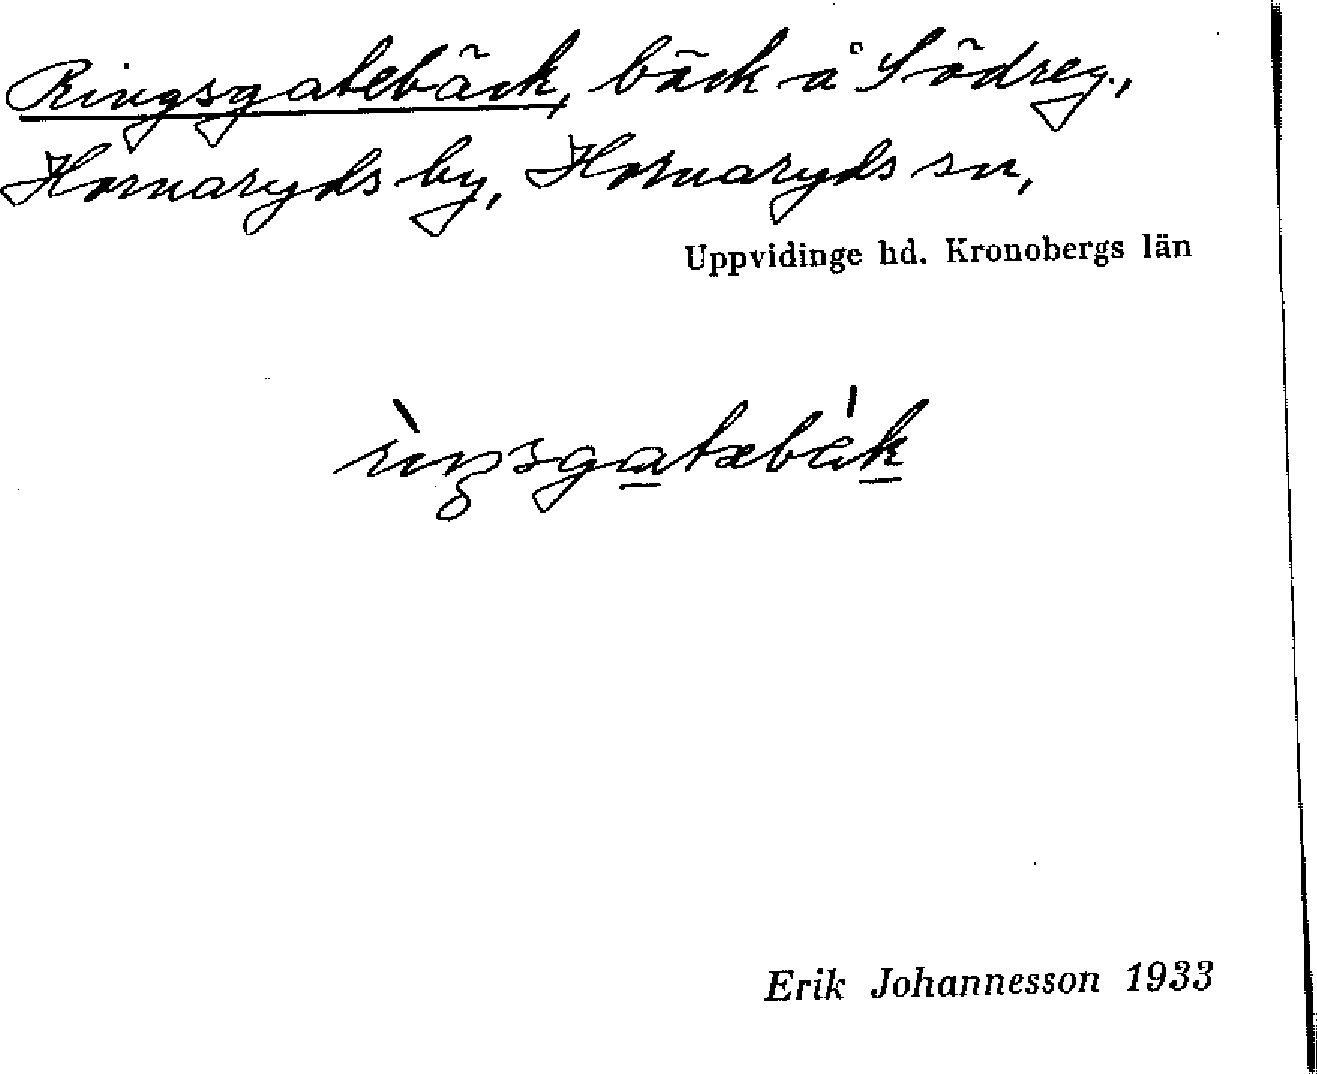 Ringsgatebäck, bäck å Södreg.,
Hornaryds by, Hornaryds sn,
Uppvidinge hd. Kronobergs län
rìŋsgatæbák
Erik Johannesson 1933